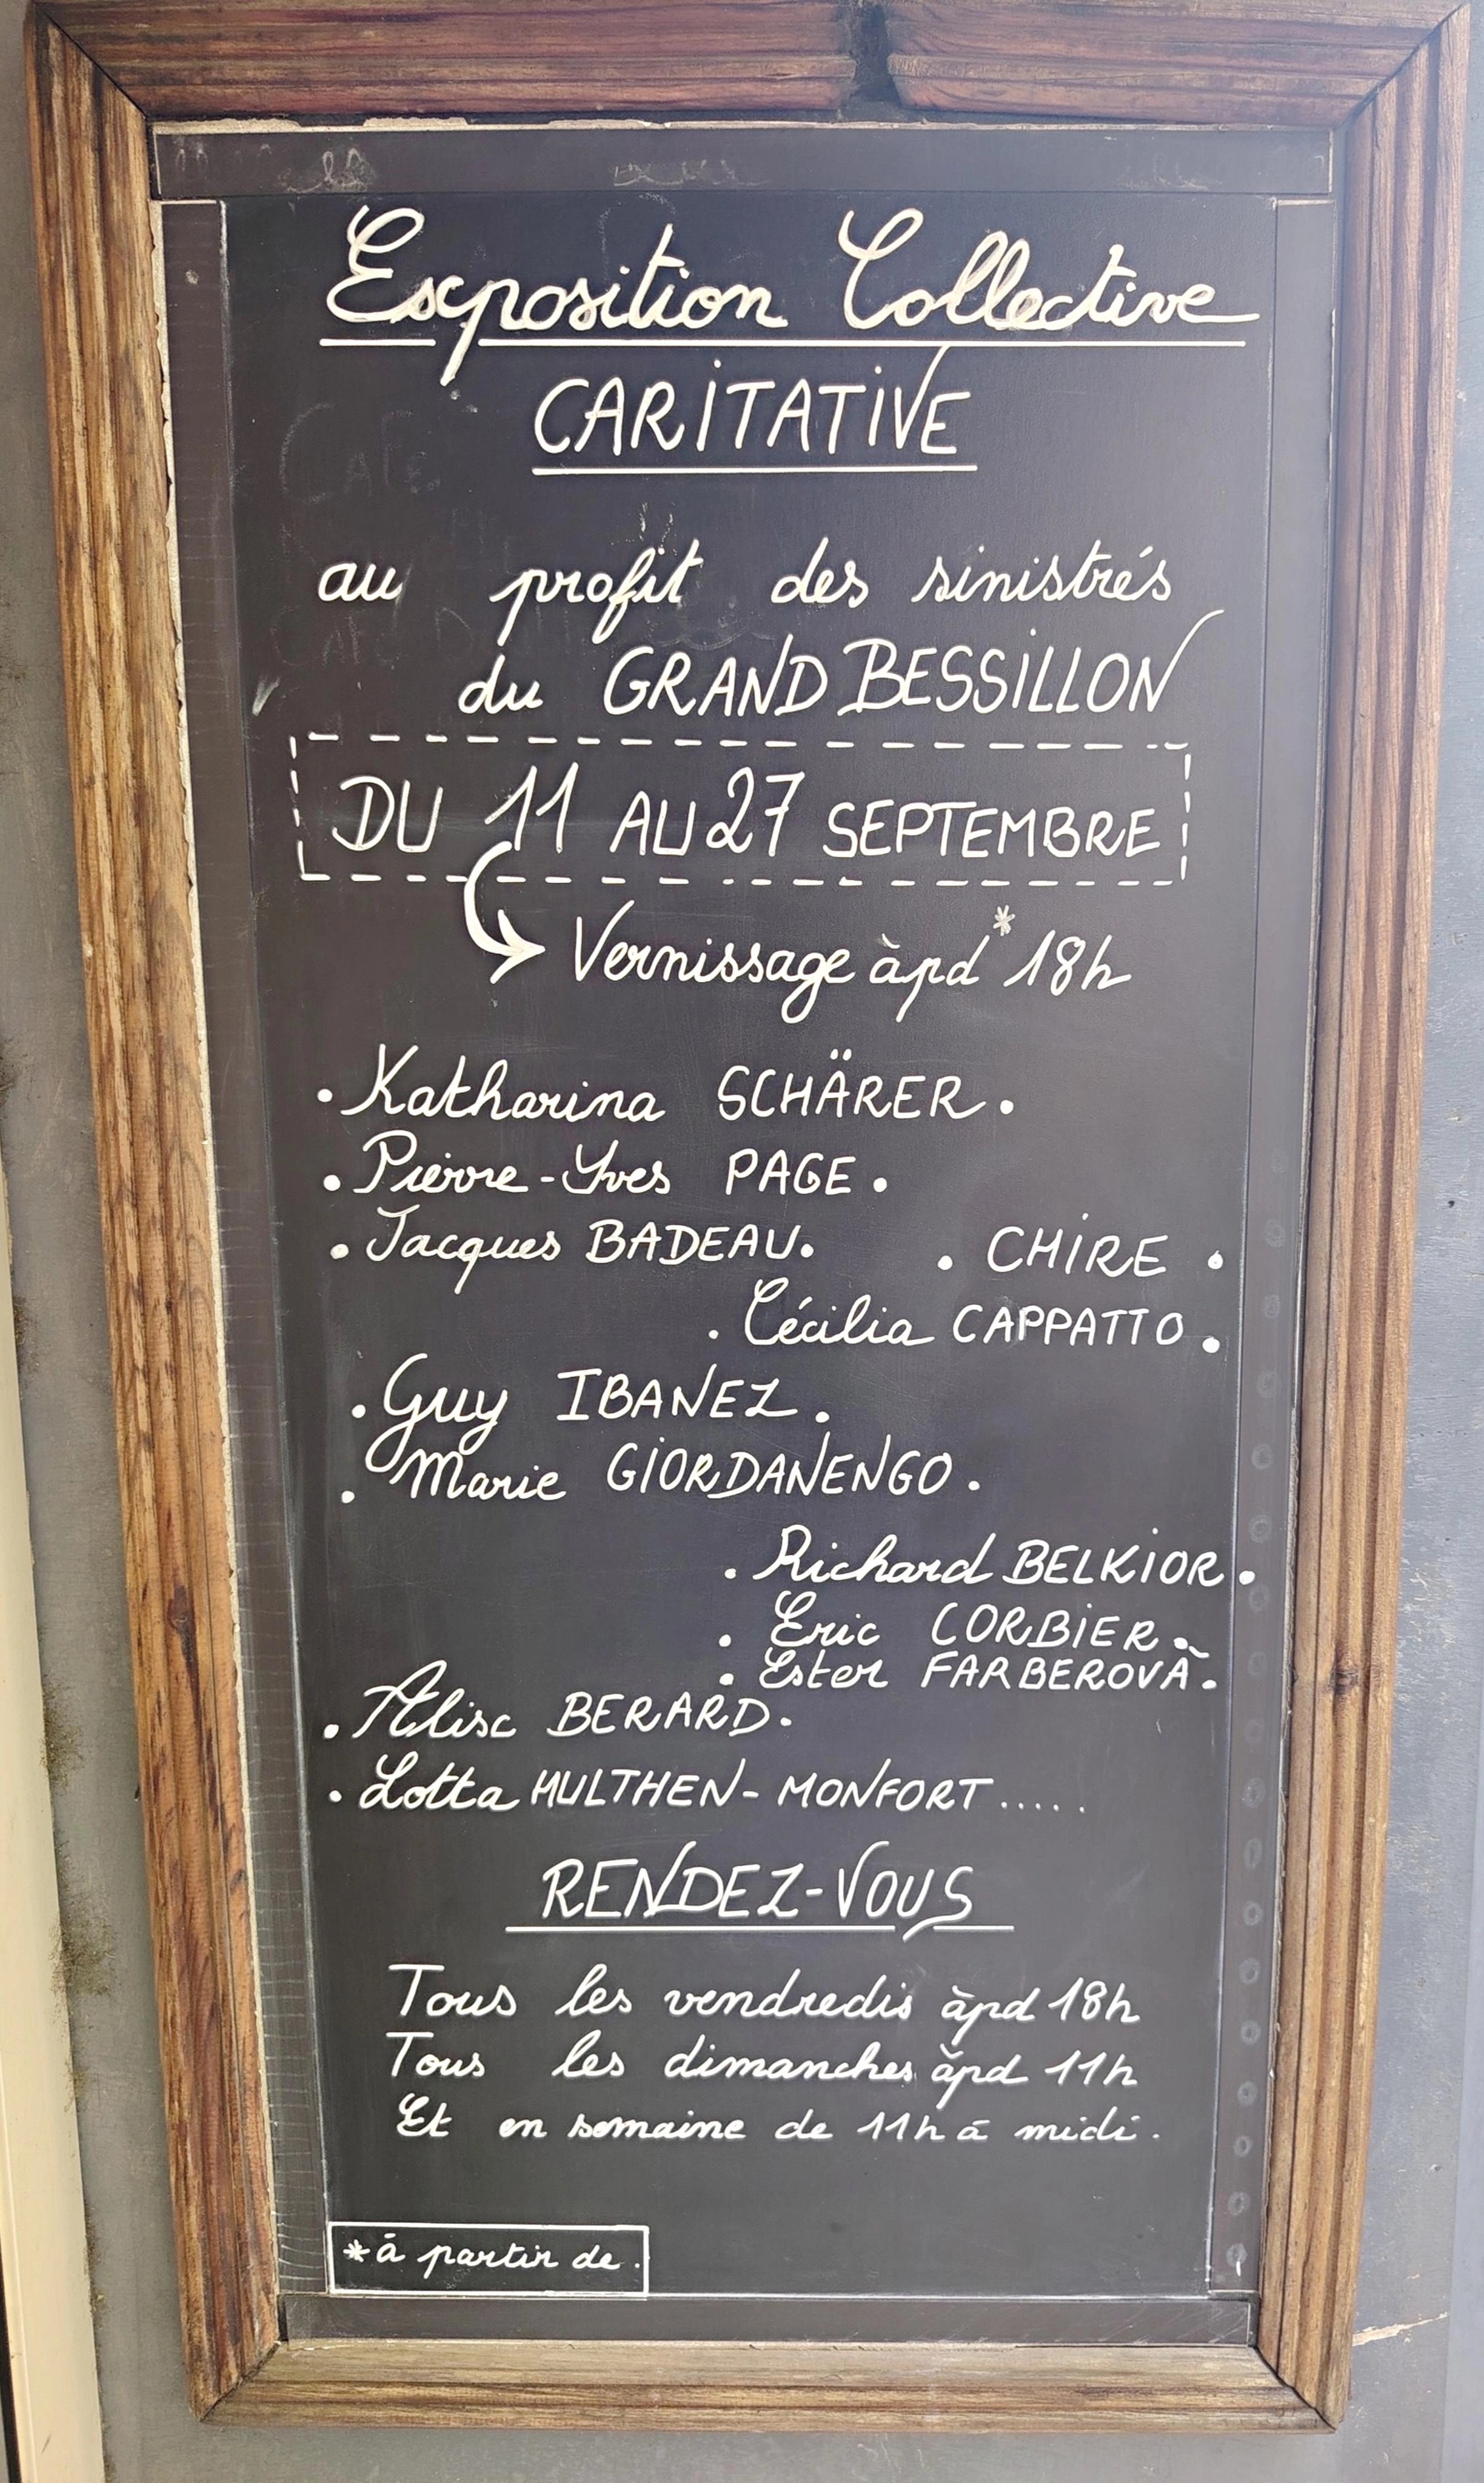 Exposition Collective
CARITATIVE
au profit des sinistrés
du GRAND BESSILLON
DU 11 AU 27 SEPTEMBRE
Vernissage àpd* 18h
• Katharina SCHÄRER •
• Pierre-Yves PAGE •
• Jacques BADEAU •
• CHIRE •
• Cécilia CAPPATTO •
• Guy IBANEZ •
• Marie GIORDANENGO •
• Richard BELKIOR •
• Eric CORBIER •
• Ester FARBEROVÀ •
• Alisc BERARD •
• Lotta HULTHEN-MONFORT .....
RENDEZ-VOUS
Tous les vendredis àpd 18h
Tous les dimanches àpd 11h
Et en semaine de 11h à midi.
* à partir de.